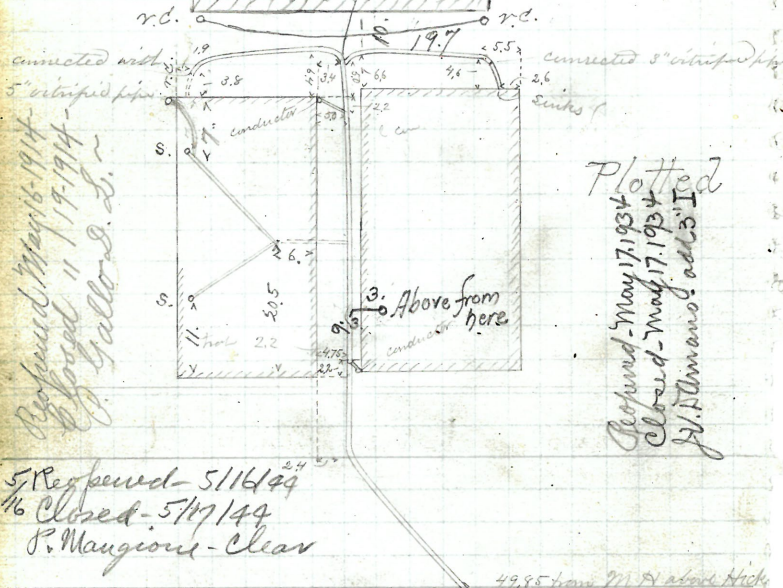 v.c.
v.c.
10.
19.7
1.9
5.5
connected with
5" vitrified pipe
connected 3" vitrified
3.8
3.4
6.6
4.6
2.6
2.2
Sinks
conductor
7"
S.
6.
S.
20.5
11.
2.2
3.
Above from
here
9.
3
conductor
4.75
2.4
Plotted
Reopened May 16-1914-
Closed 11/19-1914-
P. Gallo D. L.
Reopened-May 17.1934
Closed-May 17.1934
J.V. D'Amano. add. 3" I
5/16 Reopened- 5/16/44
Closed- 5/17/44
P. Mangione- Clear
49.85 from M.H above Hick